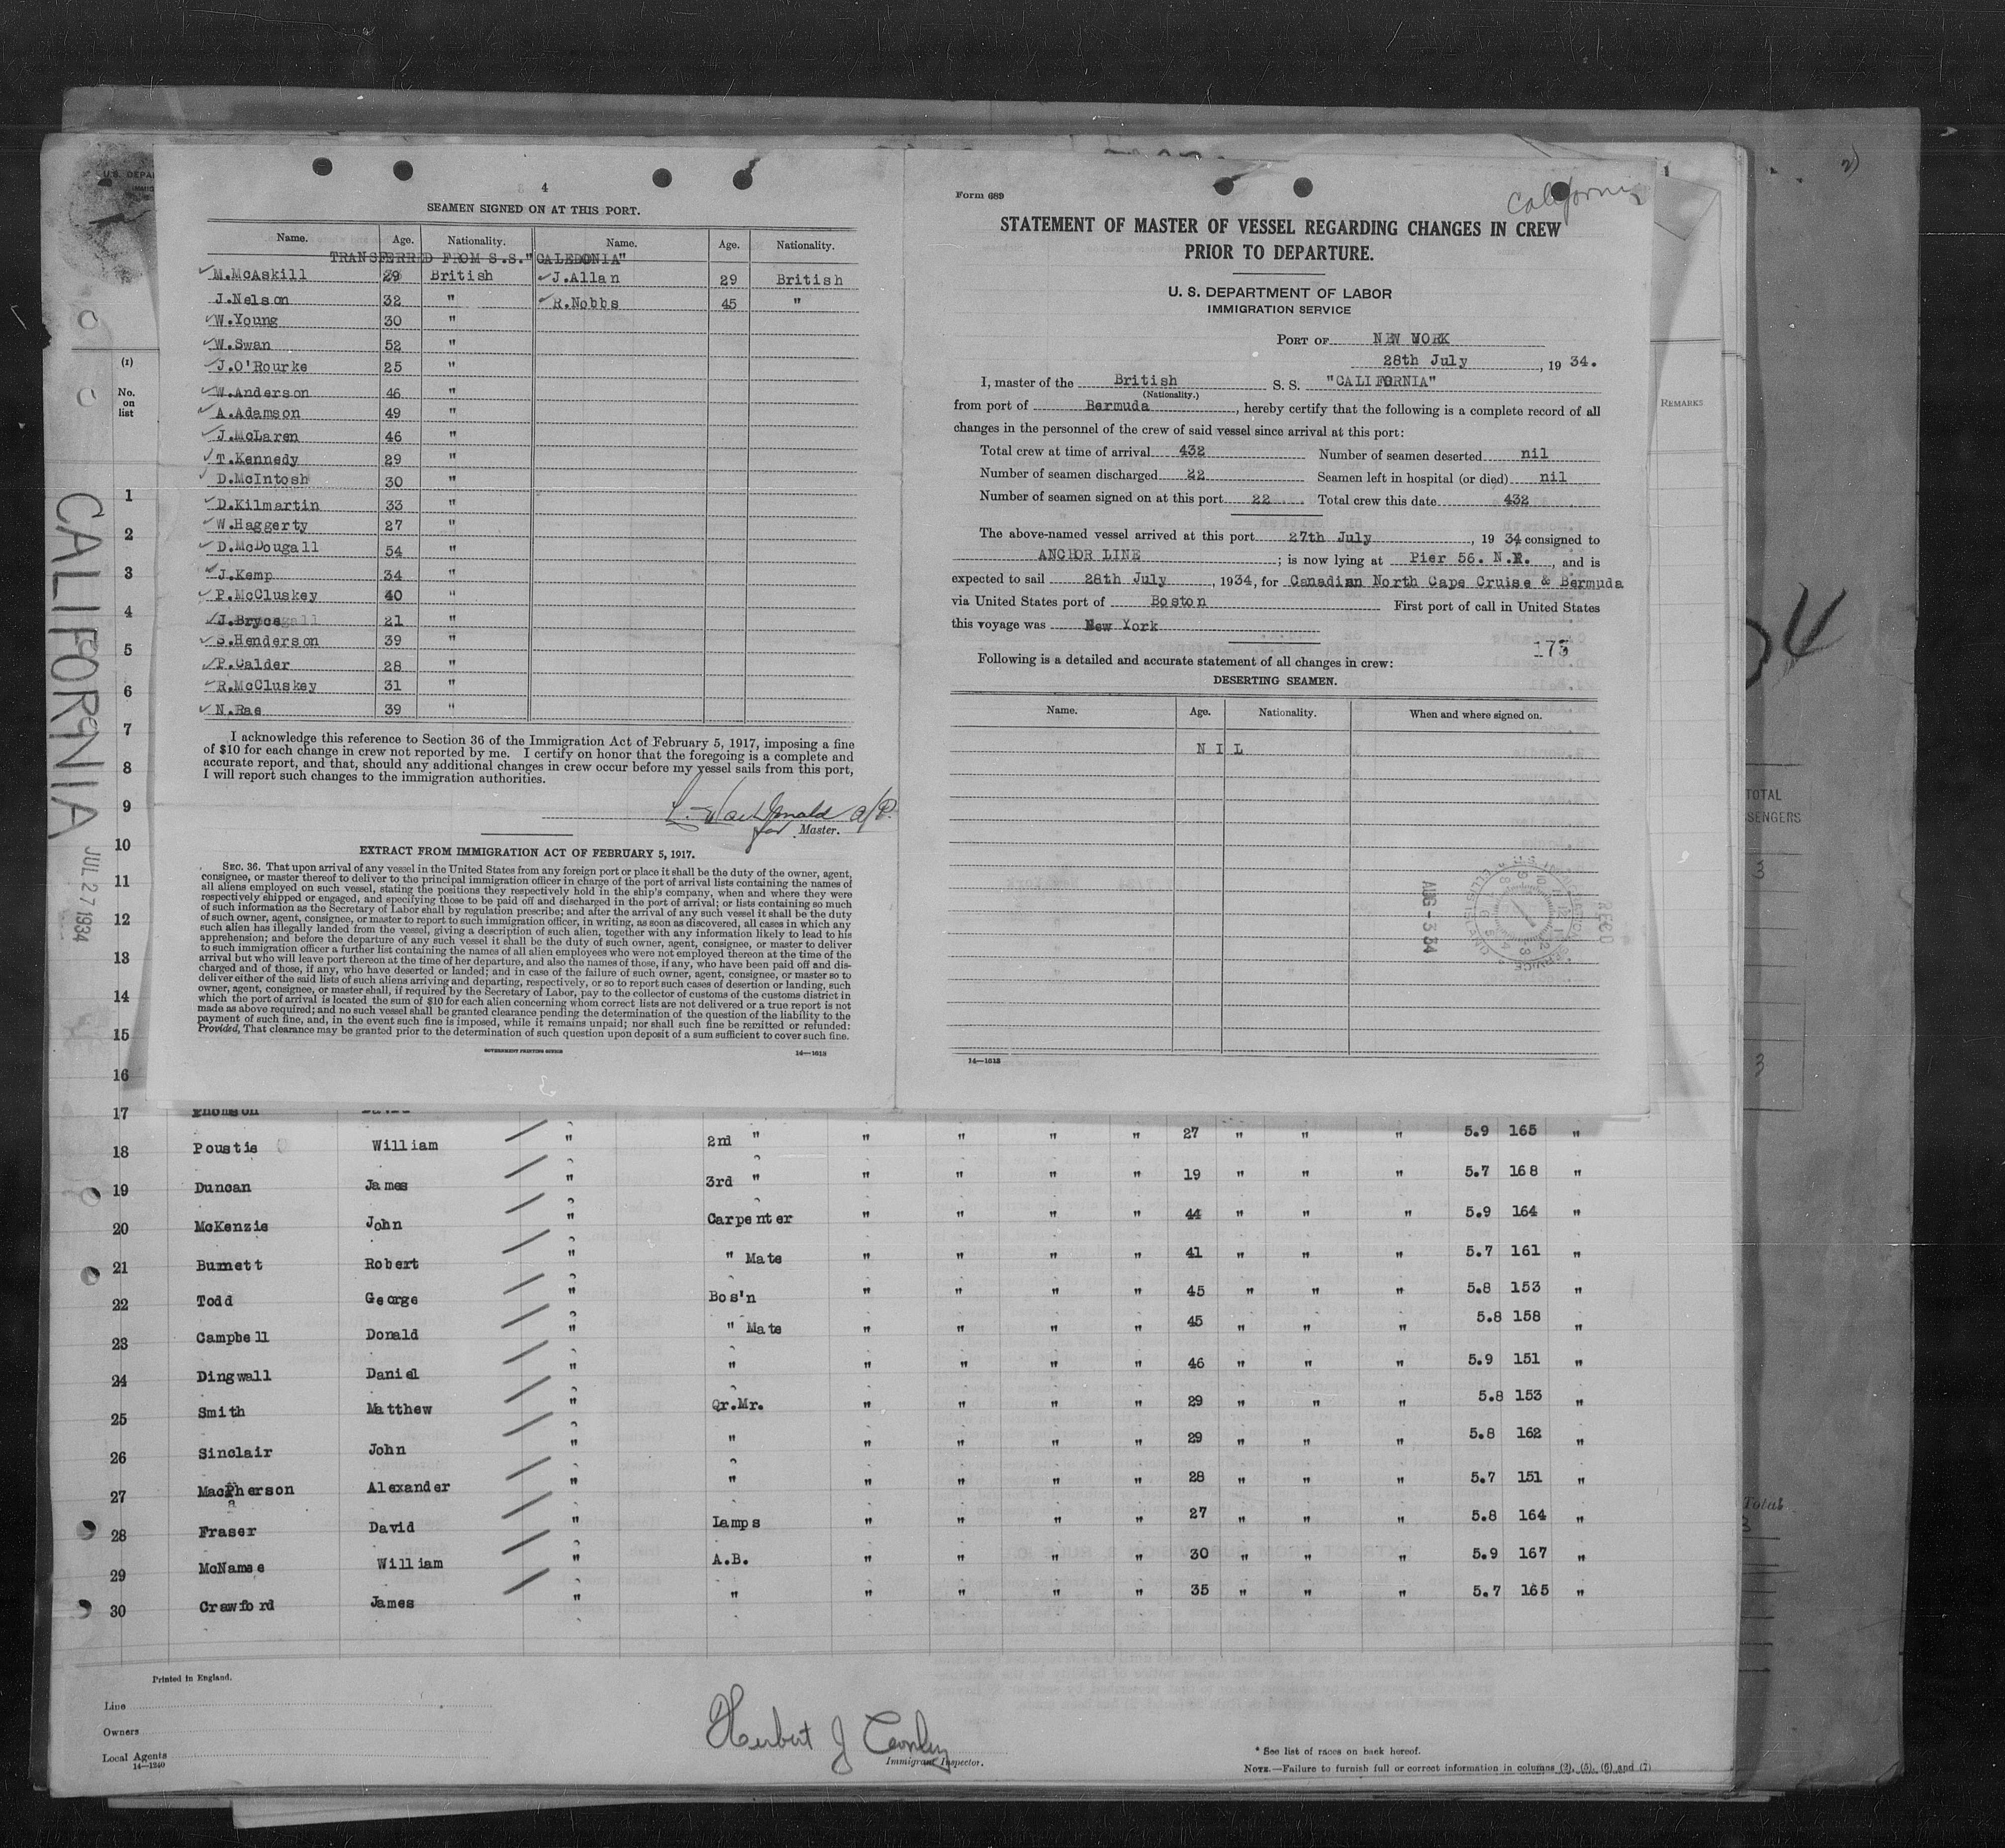 4
SEAMEN SIGNED ON AT THIS PORT.
Name. Age. Nationality. Name. Age. Nationality.
TRANSFERRED FROM S.S."CALEDONIA"
M.McAskill 29 British J.Allan 29 British
J.Nelson 32 " R.Nobbs 45 "
W.Young 30 "
W.Swan 52 "
J.O'Rourke 25 "
W.Anderson 46 "
A.Adamson 49 "
J.McLaren 46 "
T.Kennedy 29 "
D.McIntosh 30 "
D.Kilmartin 33 "
W.Haggerty 27 "
D.McDougall 54 "
J.Kemp 34 "
P.McCluskey 40 "
J.Bryce 21 "
S.Henderson 39 "
P.Calder 28 "
R.McCluskey 31 "
N.Rae 39 "
I acknowledge this reference to Section 36 of the Immigration Act of February 5, 1917, imposing a fine
of $10 for each change in crew not reported by me. I certify on honor that the foregoing is a complete and
accurate report, and that, should any additional changes in crew occur before my vessel sails from this port,
I will report such changes to the immigration authorities.
for Master.
EXTRACT FROM IMMIGRATION ACT OF FEBRUARY 5, 1917.
SEC. 36. That upon arrival of any vessel in the United States from any foreign port or place it shall be the duty of the owner, agent,
consignee, or master thereof to deliver to the principal immigration officer in charge of the port of arrival lists containing the names of
all aliens employed on such vessel, stating the positions they respectively hold in the ship's company, when and where they were
respectively shipped or engaged, and specifying those to be paid off and discharged in the port of arrival; or lists containing so much
of such information as the Secretary of Labor shall by regulation prescribe; and after the arrival of any such vessel it shall be the duty
of such owner, agent, consignee, or master to report to such immigration officer, in writing, as soon as discovered, all cases in which any
such alien has illegally landed from the vessel, giving a description of such alien, together with any information likely to lead to his
apprehension; and before the departure of any such vessel it shall be the duty of such owner, agent, consignee, or master to deliver
to such immigration officer a further list containing the names of all alien employees who were not employed thereon at the time of the
arrival but who will leave port thereon at the time of her departure, and also the names of those, if any, who have been paid off and dis-
charged and of those, if any, who have deserted or landed; and in case of the failure of such owner, agent, consignee, or master so to
deliver either of the said lists of such aliens arriving and departing, respectively, or so to report such cases of desertion or landing, such
owner, agent, consignee, or master shall, if required by the Secretary of Labor, pay to the collector of customs of the customs district in
which the port of arrival is located the sum of $10 for each alien concerning whom correct lists are not delivered or a true report is not
made as above required; and no such vessel shall be granted clearance pending the determination of the question of the liability to the
payment of such fine, and, in the event such fine is imposed, while it remains unpaid; nor shall such fine be remitted or refunded:
Provided, That clearance may be granted prior to the determination of such question upon deposit of a sum sufficient to cover such fine.
GOVERNMENT PRINTING OFFICE 14—1613
California
Form 689
STATEMENT OF MASTER OF VESSEL REGARDING CHANGES IN CREW
PRIOR TO DEPARTURE.
U. S. DEPARTMENT OF LABOR
IMMIGRATION SERVICE
PORT OF NEW YORK
28th July, 1934.
I, master of the British S. S. "CALIFORNIA"
(Nationality.)
from port of Bermuda, hereby certify that the following is a complete record of all
changes in the personnel of the crew of said vessel since arrival at this port:
Total crew at time of arrival 432 Number of seamen deserted nil
Number of seamen discharged 22 Seamen left in hospital (or died) nil
Number of seamen signed on at this port 22 Total crew this date 432
The above-named vessel arrived at this port 27th July, 1934 consigned to
ANCHOR LINE; is now lying at Pier 56. N.R., and is
expected to sail 28th July, 1934, for Canadian North Cape Cruise & Bermuda
via United States port of Boston First port of call in United States
this voyage was New York
173
Following is a detailed and accurate statement of all changes in crew:
DESERTING SEAMEN.
Name. Age. Nationality. When and where signed on.
N I L
AUG -3 34
REC'D
14—1613
CALIFORNIA
JUL 27 1934
(1)
No.
on
list
REMARKS
TOTAL
3
3
Total
3
1
2
3
4
5
6
7
8
9
10
11
12
13
14
15
16
17 Thomson David
18 Poustie William " 2nd " " " " " 27 " " " 5.9 165 "
19 Duncan James " 3rd " " " " " 19 " " " 5.7 168 "
20 McKenzie John " Carpenter " " " " 44 " " " 5.9 164 "
21 Burnett Robert " " Mate " " " " 41 " " " 5.7 161 "
22 Todd George " Bos'n " " " " 45 " " " 5.8 153 "
23 Campbell Donald " " Mate " " " " 45 " " " 5.8 158 "
24 Dingwall Daniel " " " " " " 46 " " " 5.9 151 "
25 Smith Matthew " Qr.Mr. " " " " 29 " " " 5.8 153 "
26 Sinclair John " " " " " " 29 " " " 5.8 162 "
27 MacPherson Alexander " " " " " " 28 " " " 5.7 151 "
28 Fraser David " Lamps " " " " 27 " " " 5.8 164 "
29 McNamee William " A.B. " " " " 30 " " " 5.9 167 "
30 Crawford James " " " " " " 35 " " " 5.7 165 "
Printed in England.
Line
Owners
Local Agents
14—1240
Herbert J Conley
Immigrant Inspector.
* See list of races on back hereof.
NOTE.—Failure to furnish full or correct information in columns (2), (5), (6) and (7)